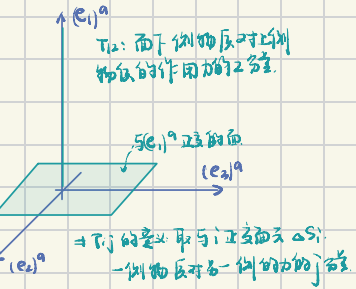 (e₁)ᵃ
T₁₂: 面下侧物质对上侧
物质的作用力的2分量.
与(e₁)ᵃ正交的面
(e₃)ᵃ
(e₂)ᵃ
⇒ Tᵢⱼ的意义: 取与i正交面元 ΔSᵢ.
一侧物质对另一侧的力的j分量.